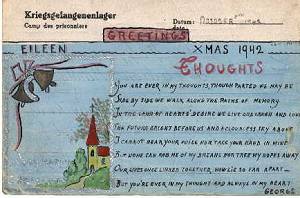 Kriegsgefangenenlager
Camp des prisonniers
Datum:
date
GREETINGS
EILEEN
XMAS 1942
THOUGHTS
YOU ARE EVER IN MY THOUGHTS, THOUGH PARTED WE MAY BE
SIDE BY SIDE WE WALK ALONG THE PATHS OF MEMORY
IN THE LAND OF HEARTS' DESIRE WE LIVE AND LOVE
THE FUTURE BRIGHT BEFORE US AND A CLOUDLESS SKY ABOVE
I CANNOT HEAR YOUR VOICE NOR TAKE YOUR HAND IN MINE
BUT NONE CAN ROB ME OF MY DREAMS
OUR LIVES ONCE LINKED TOGETHER NOW LIE SO FAR APART
BUT YOU'RE EVER IN MY THOUGHT AND ALWAYS IN MY HEART
GEORGE